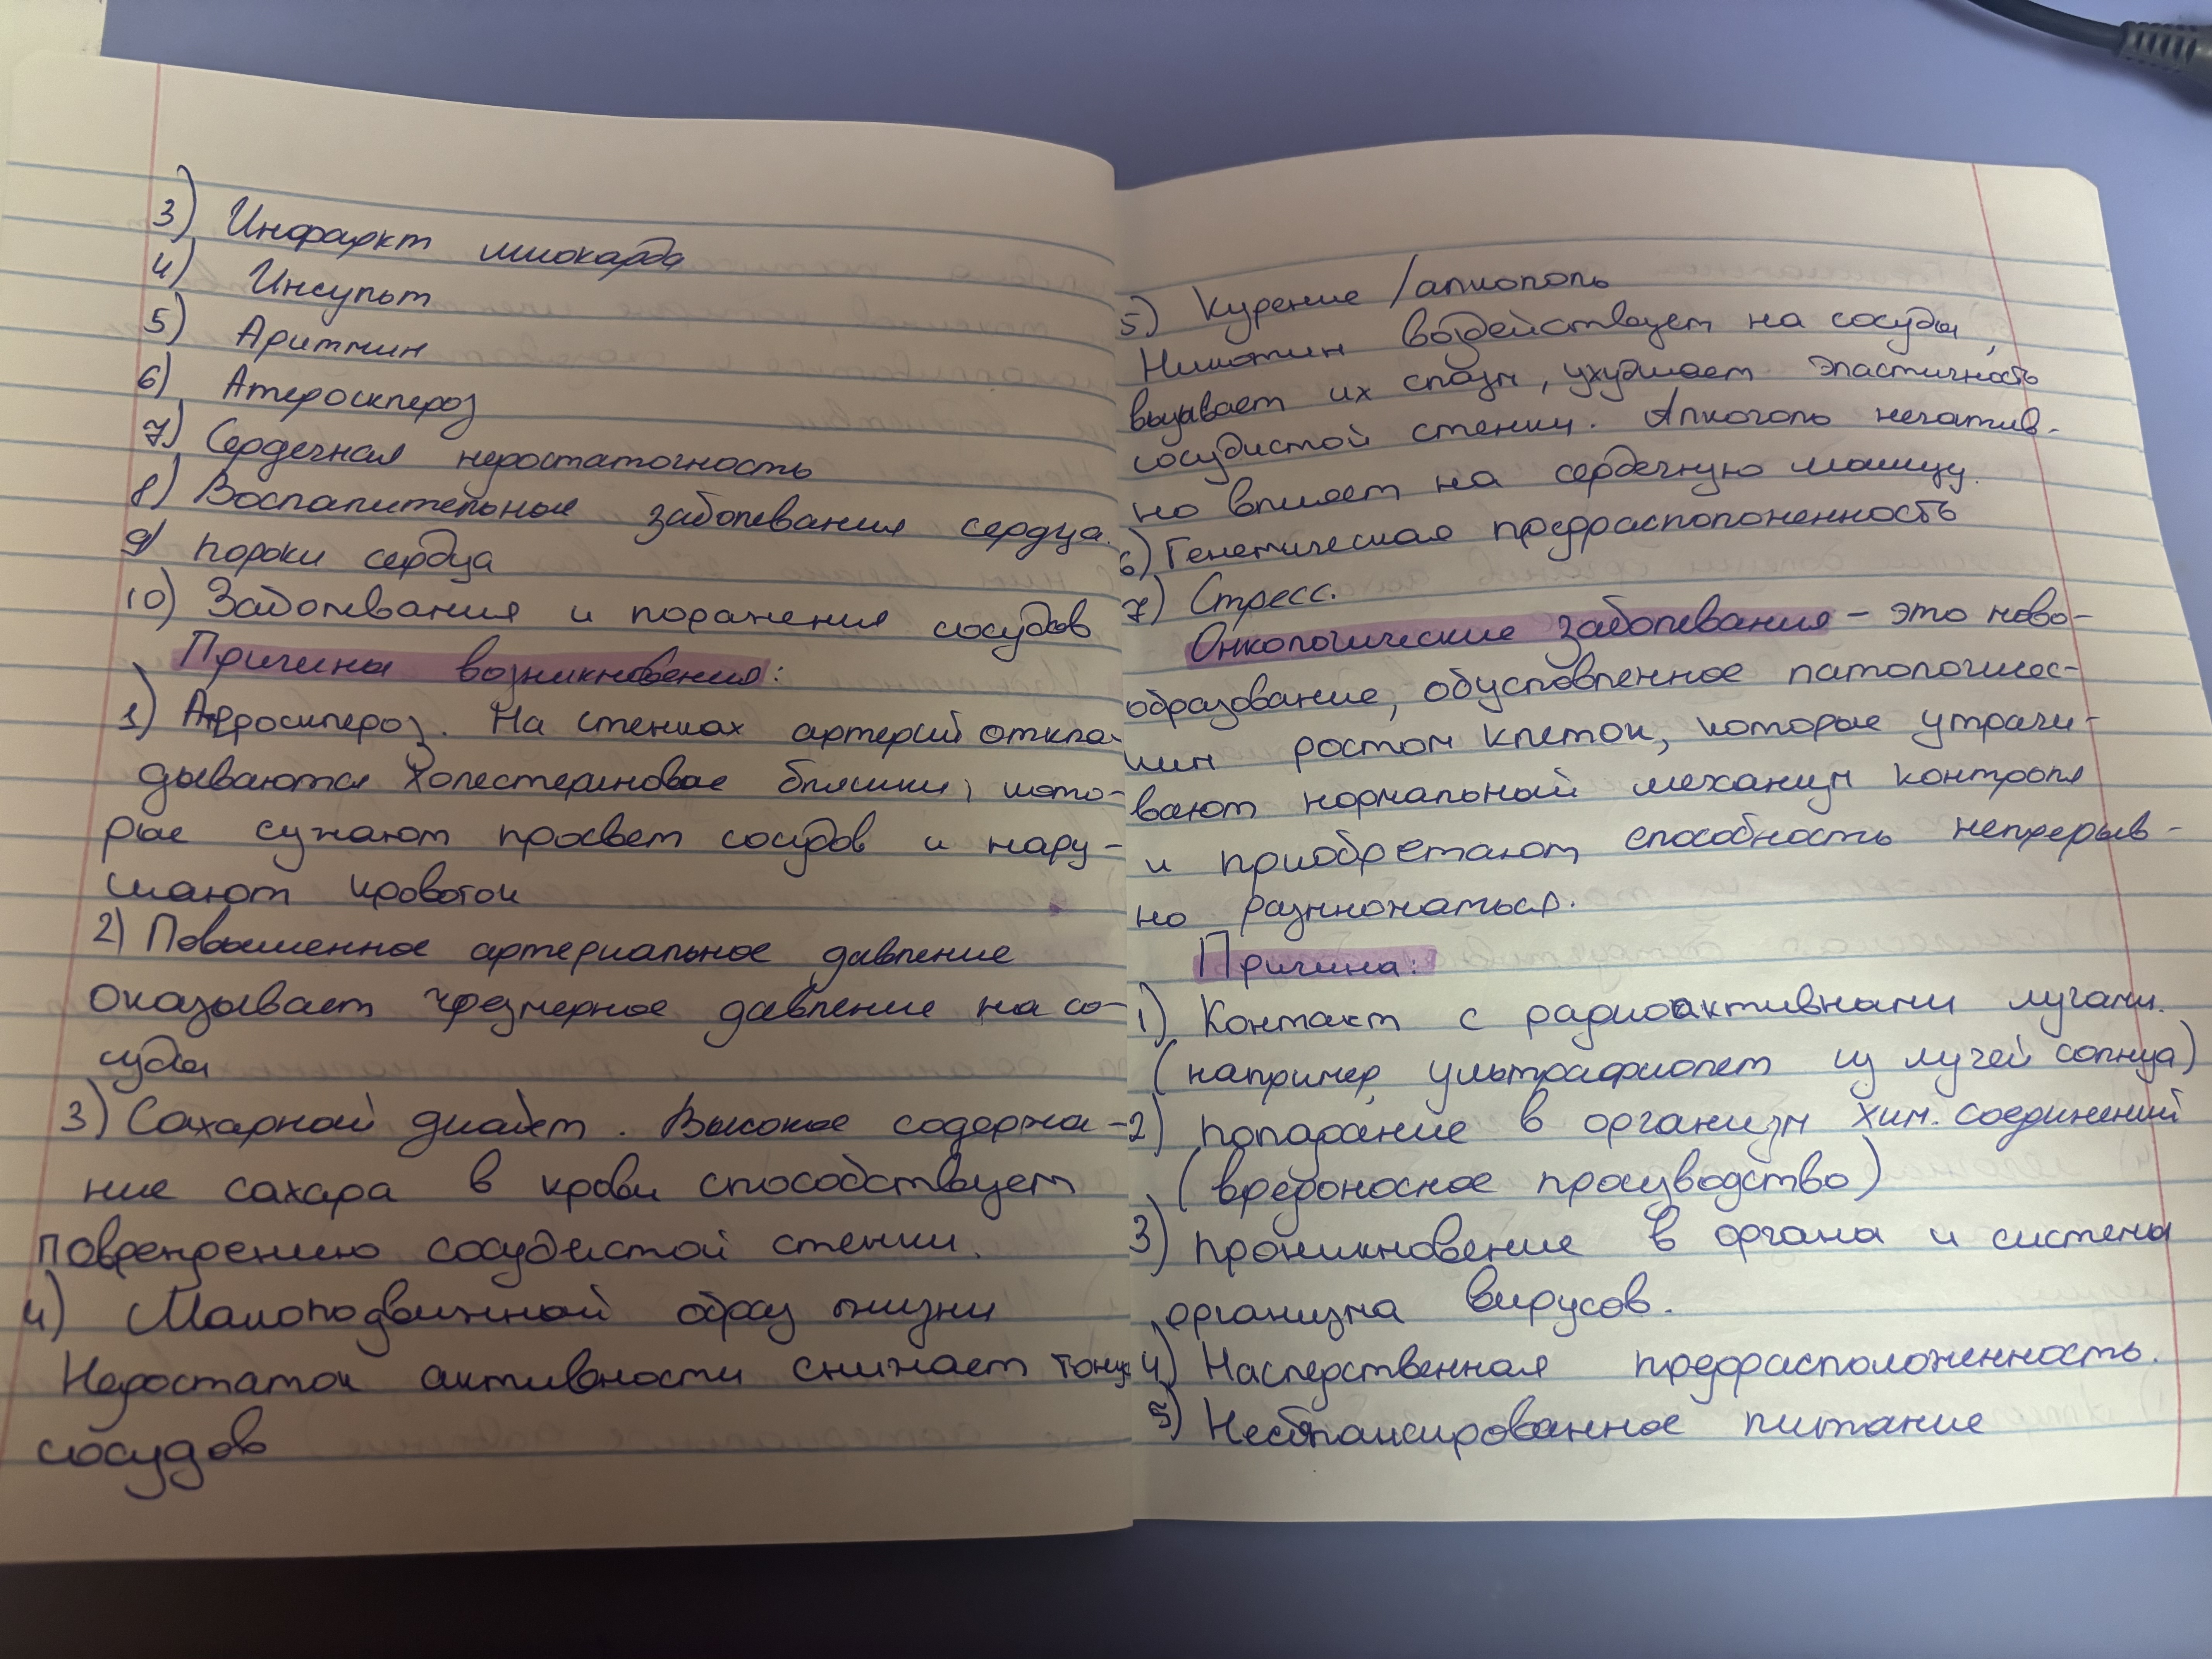 3) Инфаркт миокарда
4) Инсульт
5) Аритмии
6) Атеросклероз
7) Сердечная недостаточность
8) Воспалительные заболевания сердца.
9) пороки сердца
10) Заболевания и поражения сосудов
Причины возникновения:
1) Атеросклероз. На стенках артерий откла-
дываются холестериновые бляшки, кото-
рые сужают просвет сосудов и нару-
шают кровоток
2) Повышенное артериальное давление
оказывает чрезмерное давление на со-
суды
3) Сахарный диабет. Высокое содержа-
ние сахара в крови способствует
повреждению сосудистой стенки.
4) Малоподвижный образ жизни
Недостаток активности снижает тонус
сосудов
5) Курение /алкоголь
Никотин воздействует на сосуды,
вызывает их спазм, ухудшает эластичность
сосудистой стенки. Алкоголь негатив-
но влияет на сердечную мышцу.
6) Генетическая предрасположенность
7) Стресс.
Онкологические заболевания - это ново-
образование, обусловленное патологичес-
ким ростом клеток, которые утрачи-
вают нормальный механизм контроля
и приобретают способность непрерыв-
но размножаться.
Причины:
1) Контакт с радиоактивными лучами.
(например, ультрафиолет из лучей солнца)
2) попадание в организм хим. соединений
(вредоносное производство)
3) проникновение в органы и системы
организма вирусов.
4) Наследственная предрасположенность.
5) Несбалансированное питание